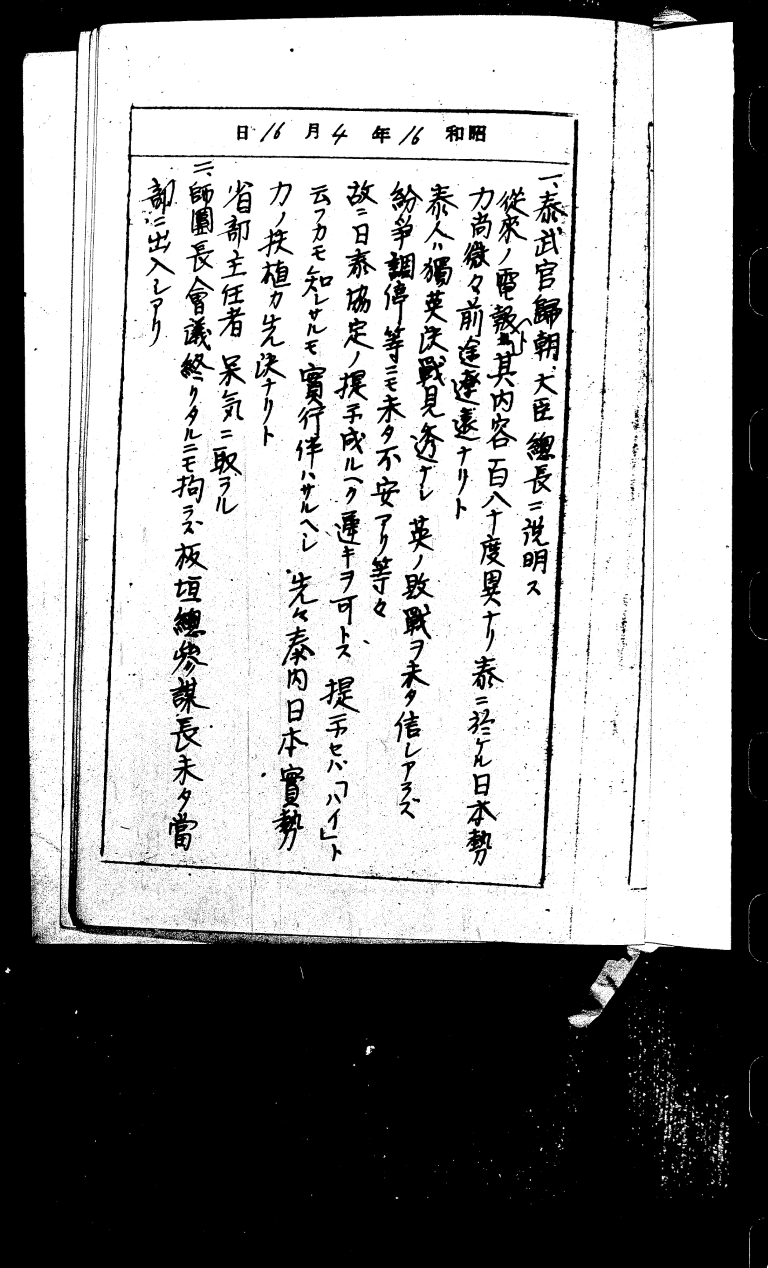 昭和16年4月16日
一、泰武官歸朝、大臣總長ニ説明ス
從來ノ電報ト其内容百八十度異ナリ泰ニ於ケル日本勢
力尚微々前途遼遠ナリト
泰人ハ獨英決戰見透ナシ 英ノ敗戰ヲ未タ信シアラズ
紛爭調停等ニモ未タ不安アリ等々
故ニ日泰協定ノ提示成ルヘク遲キヲ可トス、提示セバ「ハイ」ト
云フカモ知レサルモ實行伴ハサルヘシ 先々泰内日本實勢
力ノ扶植カ先決ナリト
省部主任者 呆気ニ取ラル
二、師團長會議終リタルニモ拘ラズ板垣總參謀長未タ當
部ニ出入シアリ